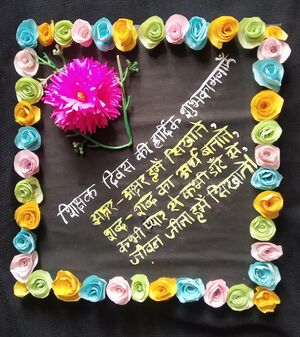 शिक्षक दिवस की हार्दिक शुभकामनाएँ
अक्षर-अक्षर हमें सिखाते,
शब्द-शब्द का अर्थ बताते,
कभी प्यार से कभी डाँट से,
जीवन जीना हमें सिखाते।